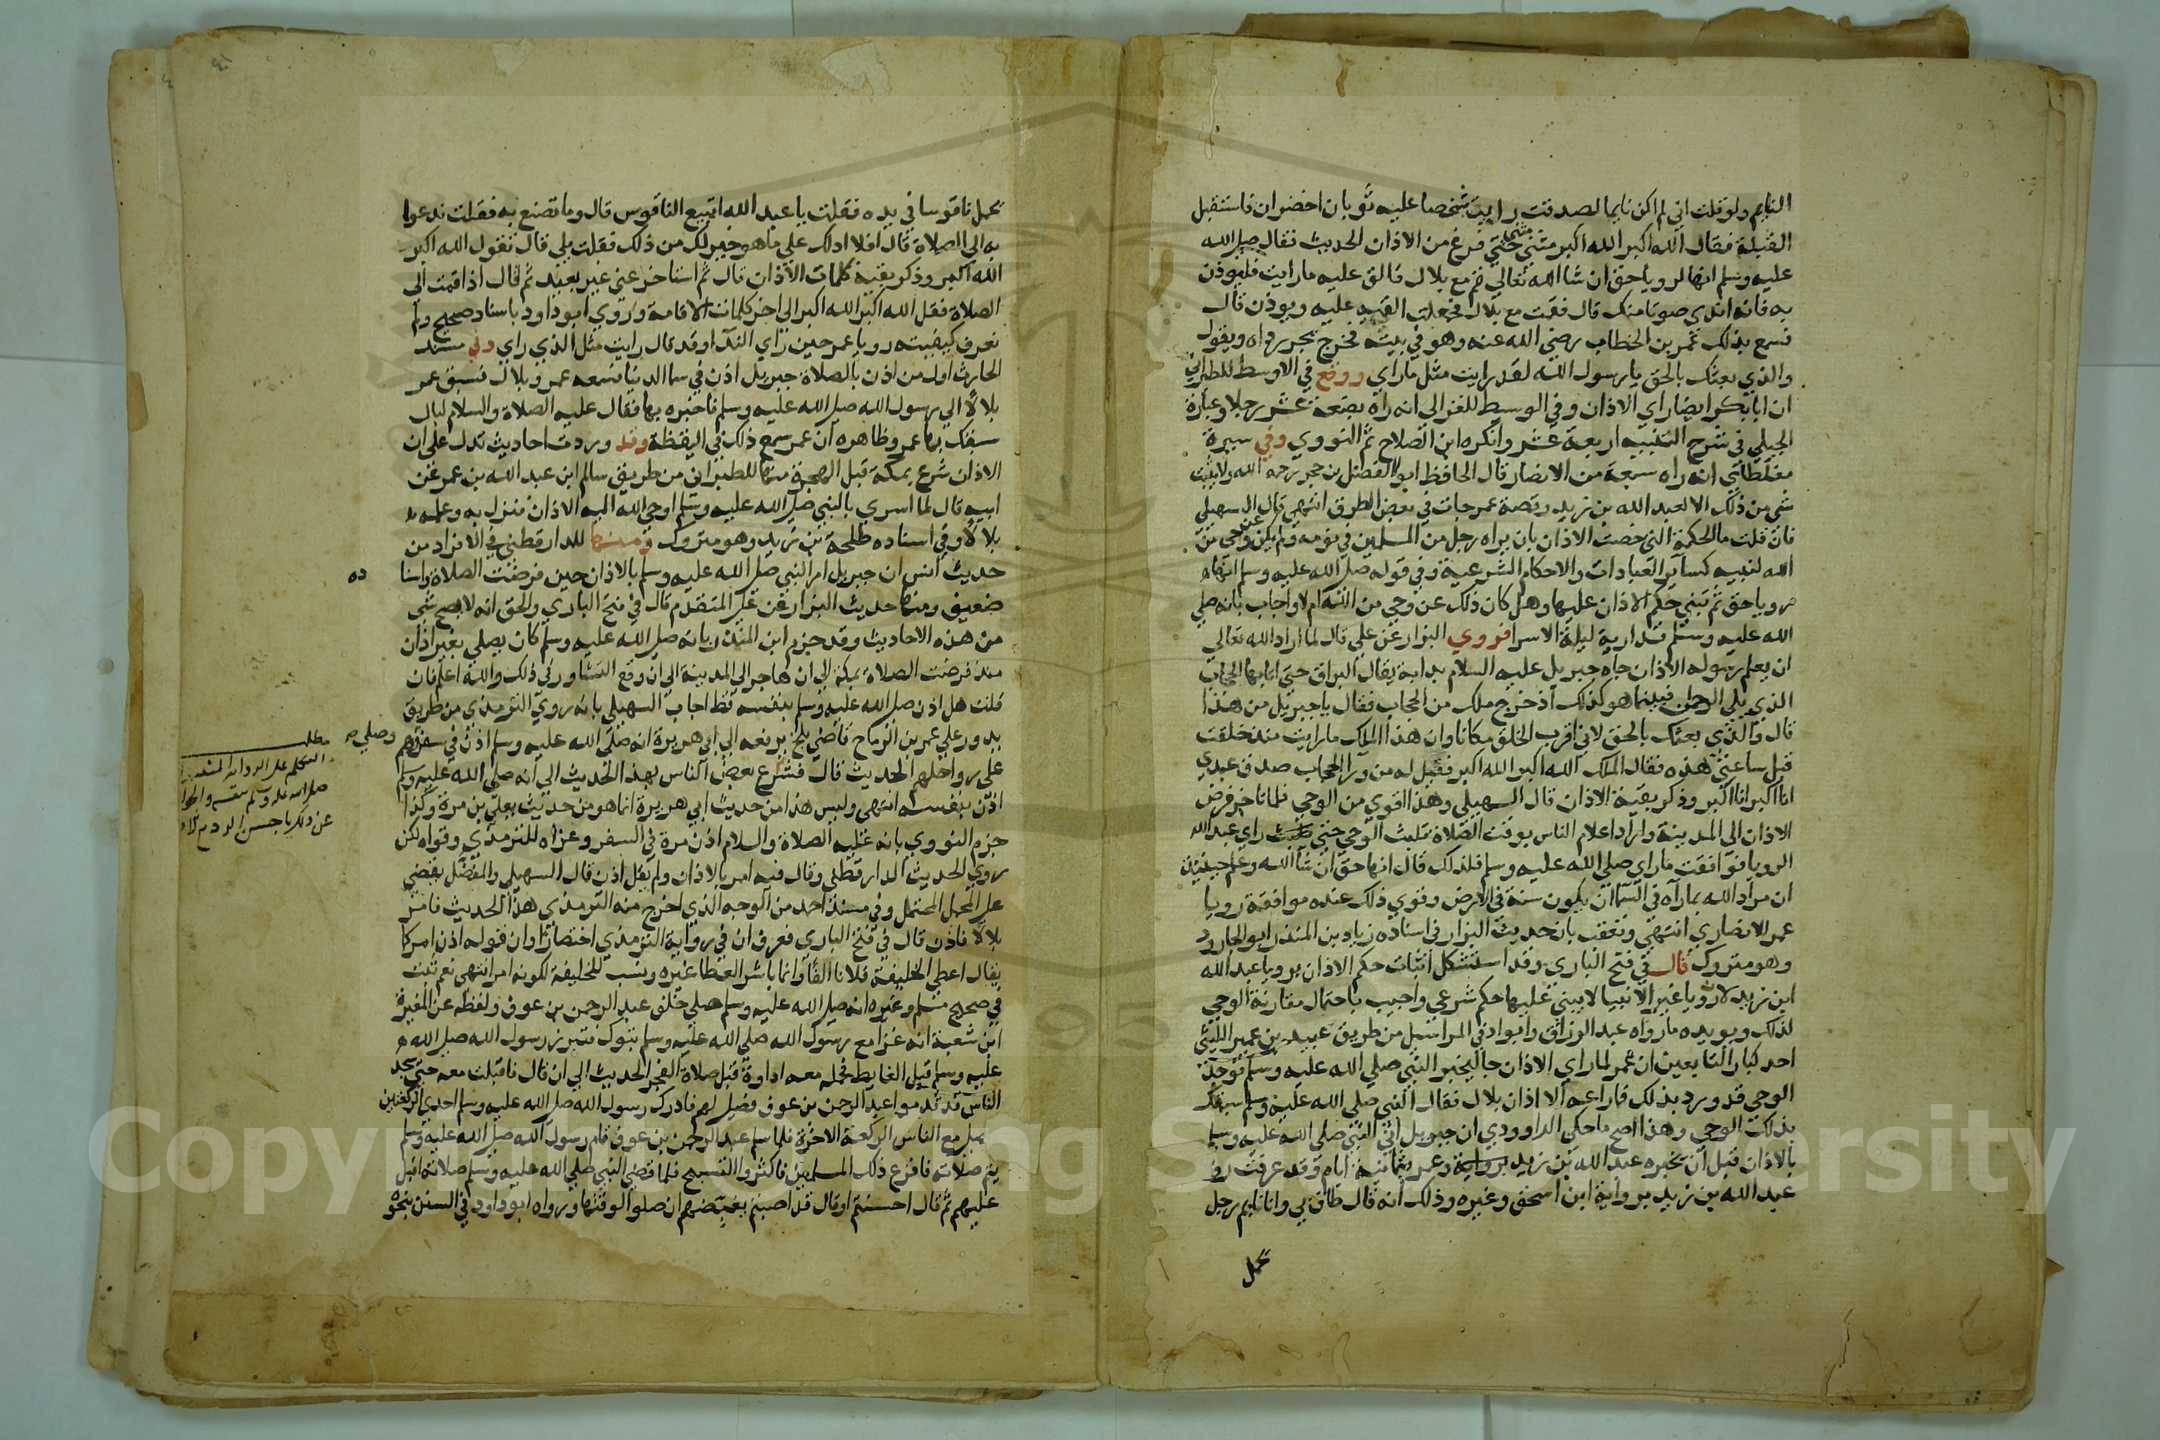 النايم ولو قلت اني لم اكن نايما لصدقت رايت شخصا عليه ثوبان اخضران فاستقبل
القبلة فقال الله اكبر الله اكبر مثني مثني حتي فرغ من الاذان الحديث فقال صلي الله
عليه وسلم انها لرويا حق ان شا الله تعالي قم مع بلال فالق عليه ما رايت فليوذن
به فانه اندي صوتا منك قال فقمت مع بلال فجعلت القيه عليه ويوذن قال
فسمع بذلك عمر بن الخطاب رضي الله عنه وهو في بيته فخرج يجر رداه ويقول
والذي بعثك بالحق يا رسول الله لقد رايت مثل ما راي ووقع في الاوسط للطبراني
ان ابا بكر ايضا راي الاذان وفي الوسيط للغزالي انه راه بضعة عشر رجلا وعبارة
الجيلي في شرح التنبيه اربعة عشر وانكره ابن الصلاح ثم النووي وفي سيرة
مغلطاي انه راه سبعة من الانصار قال الحافظ ابو الفضل بن حجر رحمه الله ولا يثبت
شي من ذلك الا لعبد الله بن زيد وقصة عمر جات في بعض الطرق انتهي قال السهيلي
فان قلت ما الحكمة التي خصت الاذان بان يراه رجل من المسلمين في نومه ولم يكن عن وحي من
الله لنبيه كساير العبادات والاحكام الشرعية وفي قوله صلي الله عليه وسلم انها
رويا حق ثم بني حكم الاذان عليها وهل كان ذلك عن وحي من الله ام لا واجاب بانه صلي
الله عليه وسلم قد اريه ليلة الاسرا فروي البزار عن علي قال لما اراد الله تعالي
ان يعلم رسوله الاذان جاه جبريل عليه السلام بدابة يقال البراق حتي اتا بها الحجاب
الذي يلي الرحمن فبينما هو كذلك اذ خرج ملك من الحجاب فقال يا جبريل من هذا
قال والذي بعثك بالحق لاني اقرب الخلق مكانا وان هذا الملك ما رايته منذ خلقت
قبل ساعتي هذه فقال الملك الله اكبر الله اكبر فقيل له من ورا الحجاب صدق عبدي
انا اكبر انا اكبر وذكر بقية الاذان قال السهيلي وهذا اقوي من الوحي فلما تاخر فرض
الاذان الي المدينة واراد اعلام الناس بوقت الصلاة تلبث الوحي حتي راي عبد الله
الرويا فوافقت ما راي صلي الله عليه وسلم فلذلك قال انها حق ان شا الله وعلم حينيذ
ان مراد الله بما رآه في السما ان يكون سنة في الارض وقوي ذلك عنده موافقة رويا
عمر للانصاري انتهي وتعقب بان حديث البزار في اسناده زياد بن المنذر ابو الجارود
وهو متروك قال في فتح الباري وقد استشكل اثبات حكم الاذان برويا عبد الله
ابن زيد لان رويا غير الانبيا لا يبني عليها حكم شرعي واجيب باحتمال مقارنة الوحي
لذلك ويويده ما رواه عبد الرزاق وابو داود في المراسيل من طريق عبيد بن عمير الليثي
احد كبار التابعين ان عمر لما راي الاذان جا ليخبر النبي صلي الله عليه وسلم فوجد
الوحي قد ورد بذلك فما راعه الا اذان بلال فقال النبي صلي الله عليه وسلم سبقك
بذلك الوحي وهذا اصح ما حكي الداوودي ان جبريل اتي النبي صلي الله عليه وسلم
بالاذان قبل ان يخبره عبد الله بن زيد وعمر بثمانية ايام وقد عرفت رويا
عبد الله بن زيد برواية ابن اسحق وغيره وذلك انه قال طاف بي وانا نايم رجل
يحمل
يحمل ناقوسا في يده فقلت يا عبد الله اتبيع الناقوس قال وما تصنع به فقلت ندعوا
به الي الصلاة قال افلا ادلك علي ما هو خير لك من ذلك فقلت بلي قال تقول الله اكبر
الله اكبر وذكر بقية كلمات الاذان قال ثم استاخر عني غير بعيد ثم قال اذا قمت الي
الصلاة فقل الله اكبر الله اكبر الي اخر كلمات الاقامة وروي ابو داود باسناد صحيح ولم
نعرف كيفيته رويا عمر حين راي الندا وقد قال رايت مثل الذي راي وفي مسند
الحارث اول من اذن بالصلاة جبريل اذن في سما الدنيا فسمعه عمر وبلال فسبق عمر
بلالا الي رسول الله صلي الله عليه وسلم فاخبره بها فقال عليه الصلاة والسلام لبلال
سبقك بها عمر وظاهره ان عمر سمع ذلك في اليقظة وقد وردت احاديث تدل علي ان
الاذان شرع بمكة قبل الهجرة منها للطبراني من طريق سالم ابن عبد الله بن عمر عن
ابيه قال لما اسري بالنبي صلي الله عليه وسلم اوحي الله اليه الاذان فنزل به وعلمه
بلالا وفي اسناده طلحة بن زيد وهو متروك ومنها للدارقطني في الافراد من
حديث انس ان جبريل امر النبي صلي الله عليه وسلم بالاذان حين فرضت الصلاة واسنا
ده
ضعيف ومنها حديث البزار عن علي المتقدم قال في فتح الباري والحق انه لا يصح شي
من هذه الاحاديث وقد جزم ابن المنذر بانه صلي الله عليه وسلم كان يصلي بغير اذان
منذ فرضت الصلاة بمكة الي ان هاجر الي المدينة الي ان وقع التشاور في ذلك والله اعلم فان
قلت هل اذن صلي الله عليه وسلم بنفسه قط اجاب السهيلي بانه روي الترمذي من طريق
يدور علي عمر بن الرماح قاضي بلخ يرفعه الي ابي هريرة انه صلي الله عليه وسلم اذن في سفر وصلي
علي رواحلهم الحديث قال فنزع بعض الناس بهذا الحديث الي انه صلي الله عليه وسلم
اذن بنفسه انتهي وليس هذا من حديث ابي هريرة انما هو من حديث يعلي بن مرة وكذا
جزم النووي بانه عليه الصلاة والسلام اذن مرة في السفر وعزاه للترمذي وقواه لكن
روي الحديث الدارقطني وقال فيه امر بالاذان ولم يقل اذن قال السهيلي والمفصل يقضي
علي المجمل المحتمل وفي مسند احمد من الوجه الذي اخرج منه الترمذي هذا الحديث فامر
بلالا فاذن قال في فتح الباري فعرف ان في رواية الترمذي اختصارا وان قوله اذن امر كما
يقال اعطي الخليفة فلانا الفا وانما باشر العطا غيره ونسب للخليفة لكونه امر انتهي نعم ثبت
في صحيح مسلم وغيره انه صلي الله عليه وسلم صلي خلف عبد الرحمن بن عوف ولفظه عن المغيرة
ابن شعبة انه غزا مع رسول الله صلي الله عليه وسلم تبوك فتبرز رسول الله صلي الله
عليه وسلم قبل الغايط فحمله معه اداوة قبل صلاة الفجر الحديث الي ان قال فاقبلت معه حتي نجد
الناس قد قدموا عبد الرحمن بن عوف فصلي لهم فادرك رسول الله صلي الله عليه وسلم احدي الركعتين
فصلي مع الناس الركعة الاخرة فلما سلم عبد الرحمن بن عوف قام رسول الله صلي الله عليه وسلم
يتم صلاته فافزع ذلك المسلمين فاكثروا التسبيح فلما قضي النبي صلي الله عليه وسلم صلاته اقبل
عليهم ثم قال احسنتم او قال قد اصبتم يغبطهم ان صلوا الوقتها ورواه ابو داود في السنن بنحوه
مطلب
التكلم علي
صلي الله عليه وسلم بنفسه والجواب
عن ذلك
Copyright © King Saud University